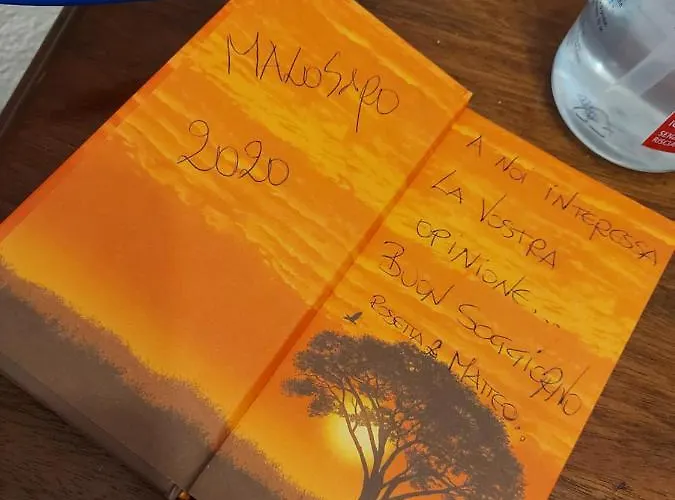 MALOSAPO
2020
A NOI INTERESSA
LA VOSTRA
OPINIONE...
BUON SOGGIORNO
ROSETTA & MATTEO..